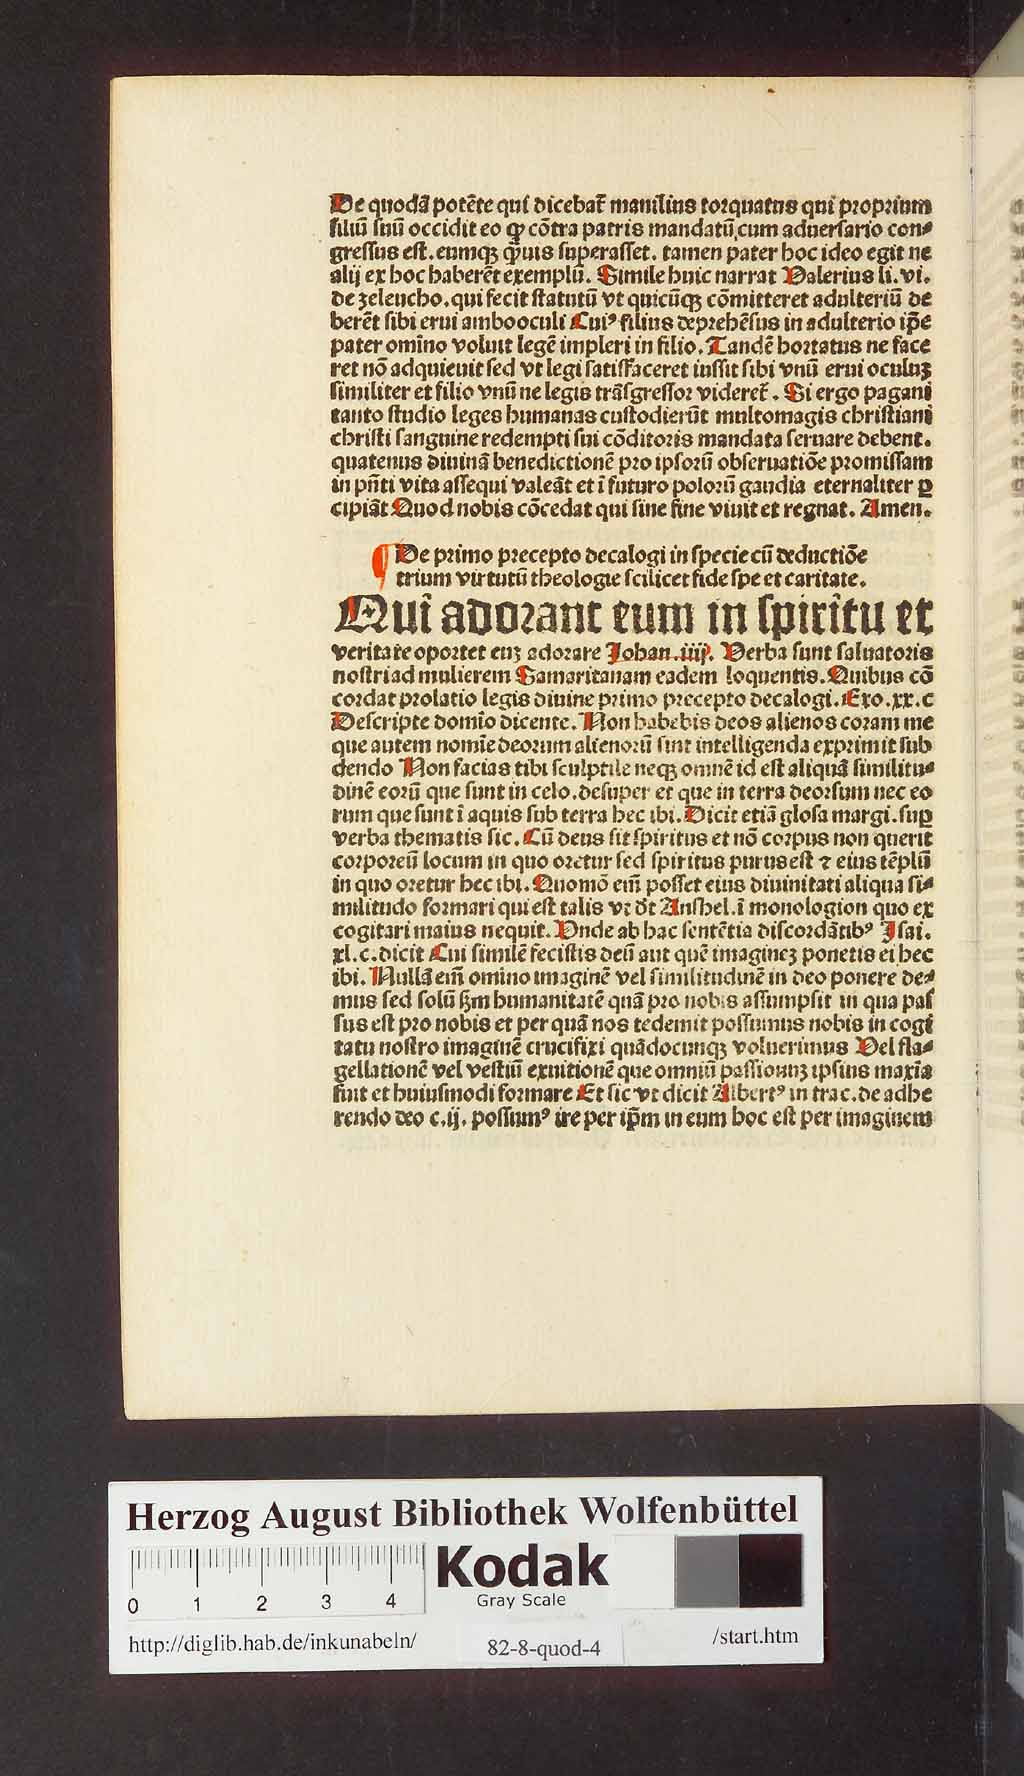 De quodā potēte qui dicebat̄ manilius torquatus qui proprium
filiū suū occidit eo ꝙ cōtra patris mandatū cum aduersario con⸗
gressus est. eumqꝫ qͣuis superasset. tamen pater hoc ideo egit ne
alij ex hoc haberēt exemplū. Simile huic narrat Valerius li. vi.
de zeleucho. qui fecit statutū vt quicūqꝫ cōmitteret adulteriū de
berēt sibi erui ambo oculi Cuiꝰ filius deprehēsus in adulterio ip̄e
pater omino voluit legē impleri in filio. Tandē hortatus ne face
ret nō adquieuit sed vt legi satisfaceret iussit sibi vnū erui oculuꝫ
similiter et filio vnū ne legis trāsgressor videret̄. Si ergo pagani
tanto studio leges humanas custodierūt multomagis christiani
christi sanguine redempti sui cōditoris mandata seruare debent.
quatenus diuinā benedictionē pro ipsorū obseruatiōe promissam
in pn̄ti vita assequi valeāt et ī futuro polorū gaudia eternaliter ꝑ
cipiāt Quod nobis cōcedat qui sine fine viuit et regnat. Amen.
¶ De primo precepto decalogi in specie cū deductiōe
trium virtutū theologie scilicet fide spe et caritate.
Qui adorant eum in spiritu et
veritate oportet euꝫ adorare Johan. iiij. Verba sunt saluatoris
nostri ad mulierem Samaritanam eadem loquentis. Quibus cō
cordat prolatio legis diuine primo precepto decalogi. Exo. xx. c
Descripte domīo dicente. Non habebis deos alienos coram me
que autem nomīe deorum alienorū sint intelligenda exprimit sub
dendo Non facias tibi sculptile neqꝫ omnē id est aliquā similitu⸗
dinē eorū que sunt in celo. desuper et que in terra deorsum nec eo
rum que sunt ī aquis sub terra hec ibi. Dicit etiā glosa margi. suꝑ
verba thematis sic. Cū deus sit spiritus et nō corpus non querit
corporeū locum in quo oretur sed spiritus purus est ⁊ eius tēplū
in quo oretur hec ibi. Quomō em̄ posset eius diuinitati aliqua si⸗
militudo formari qui est talis vt dt̄ Anshel. ī monologion quo ex
cogitari maius nequit. Vnde ab hac sentētia discordātibꝰ Isai.
xl. c. dicit Cui similē fecistis deū aut quē imagineꝫ ponetis ei hec
ibi. Nullā em̄ omino imaginē vel similitudinē in deo ponere de⸗
mus sed solū ẜm humanitatē quā pro nobis assumpsit in qua pas
sus est pro nobis et per quā nos redemit possumus nobis in cogi
tatu nostro imaginē crucifixi quādocunqꝫ voluerimus Vel fla⸗
gellationē vel vestiū exuitionē que omniū passionuꝫ ipsius maxīa
fuit et huiusmodi formare Et sic vt dicit Albertꝰ in trac. de adhe
rendo deo c. ij. possumꝰ ire per ip̄m in eum hoc est per imaginem
Herzog August Bibliothek Wolfenbüttel
0 1 2 3 4
Kodak
Gray Scale
http://diglib.hab.de/inkunabeln/ 82-8-quod-4 /start.htm